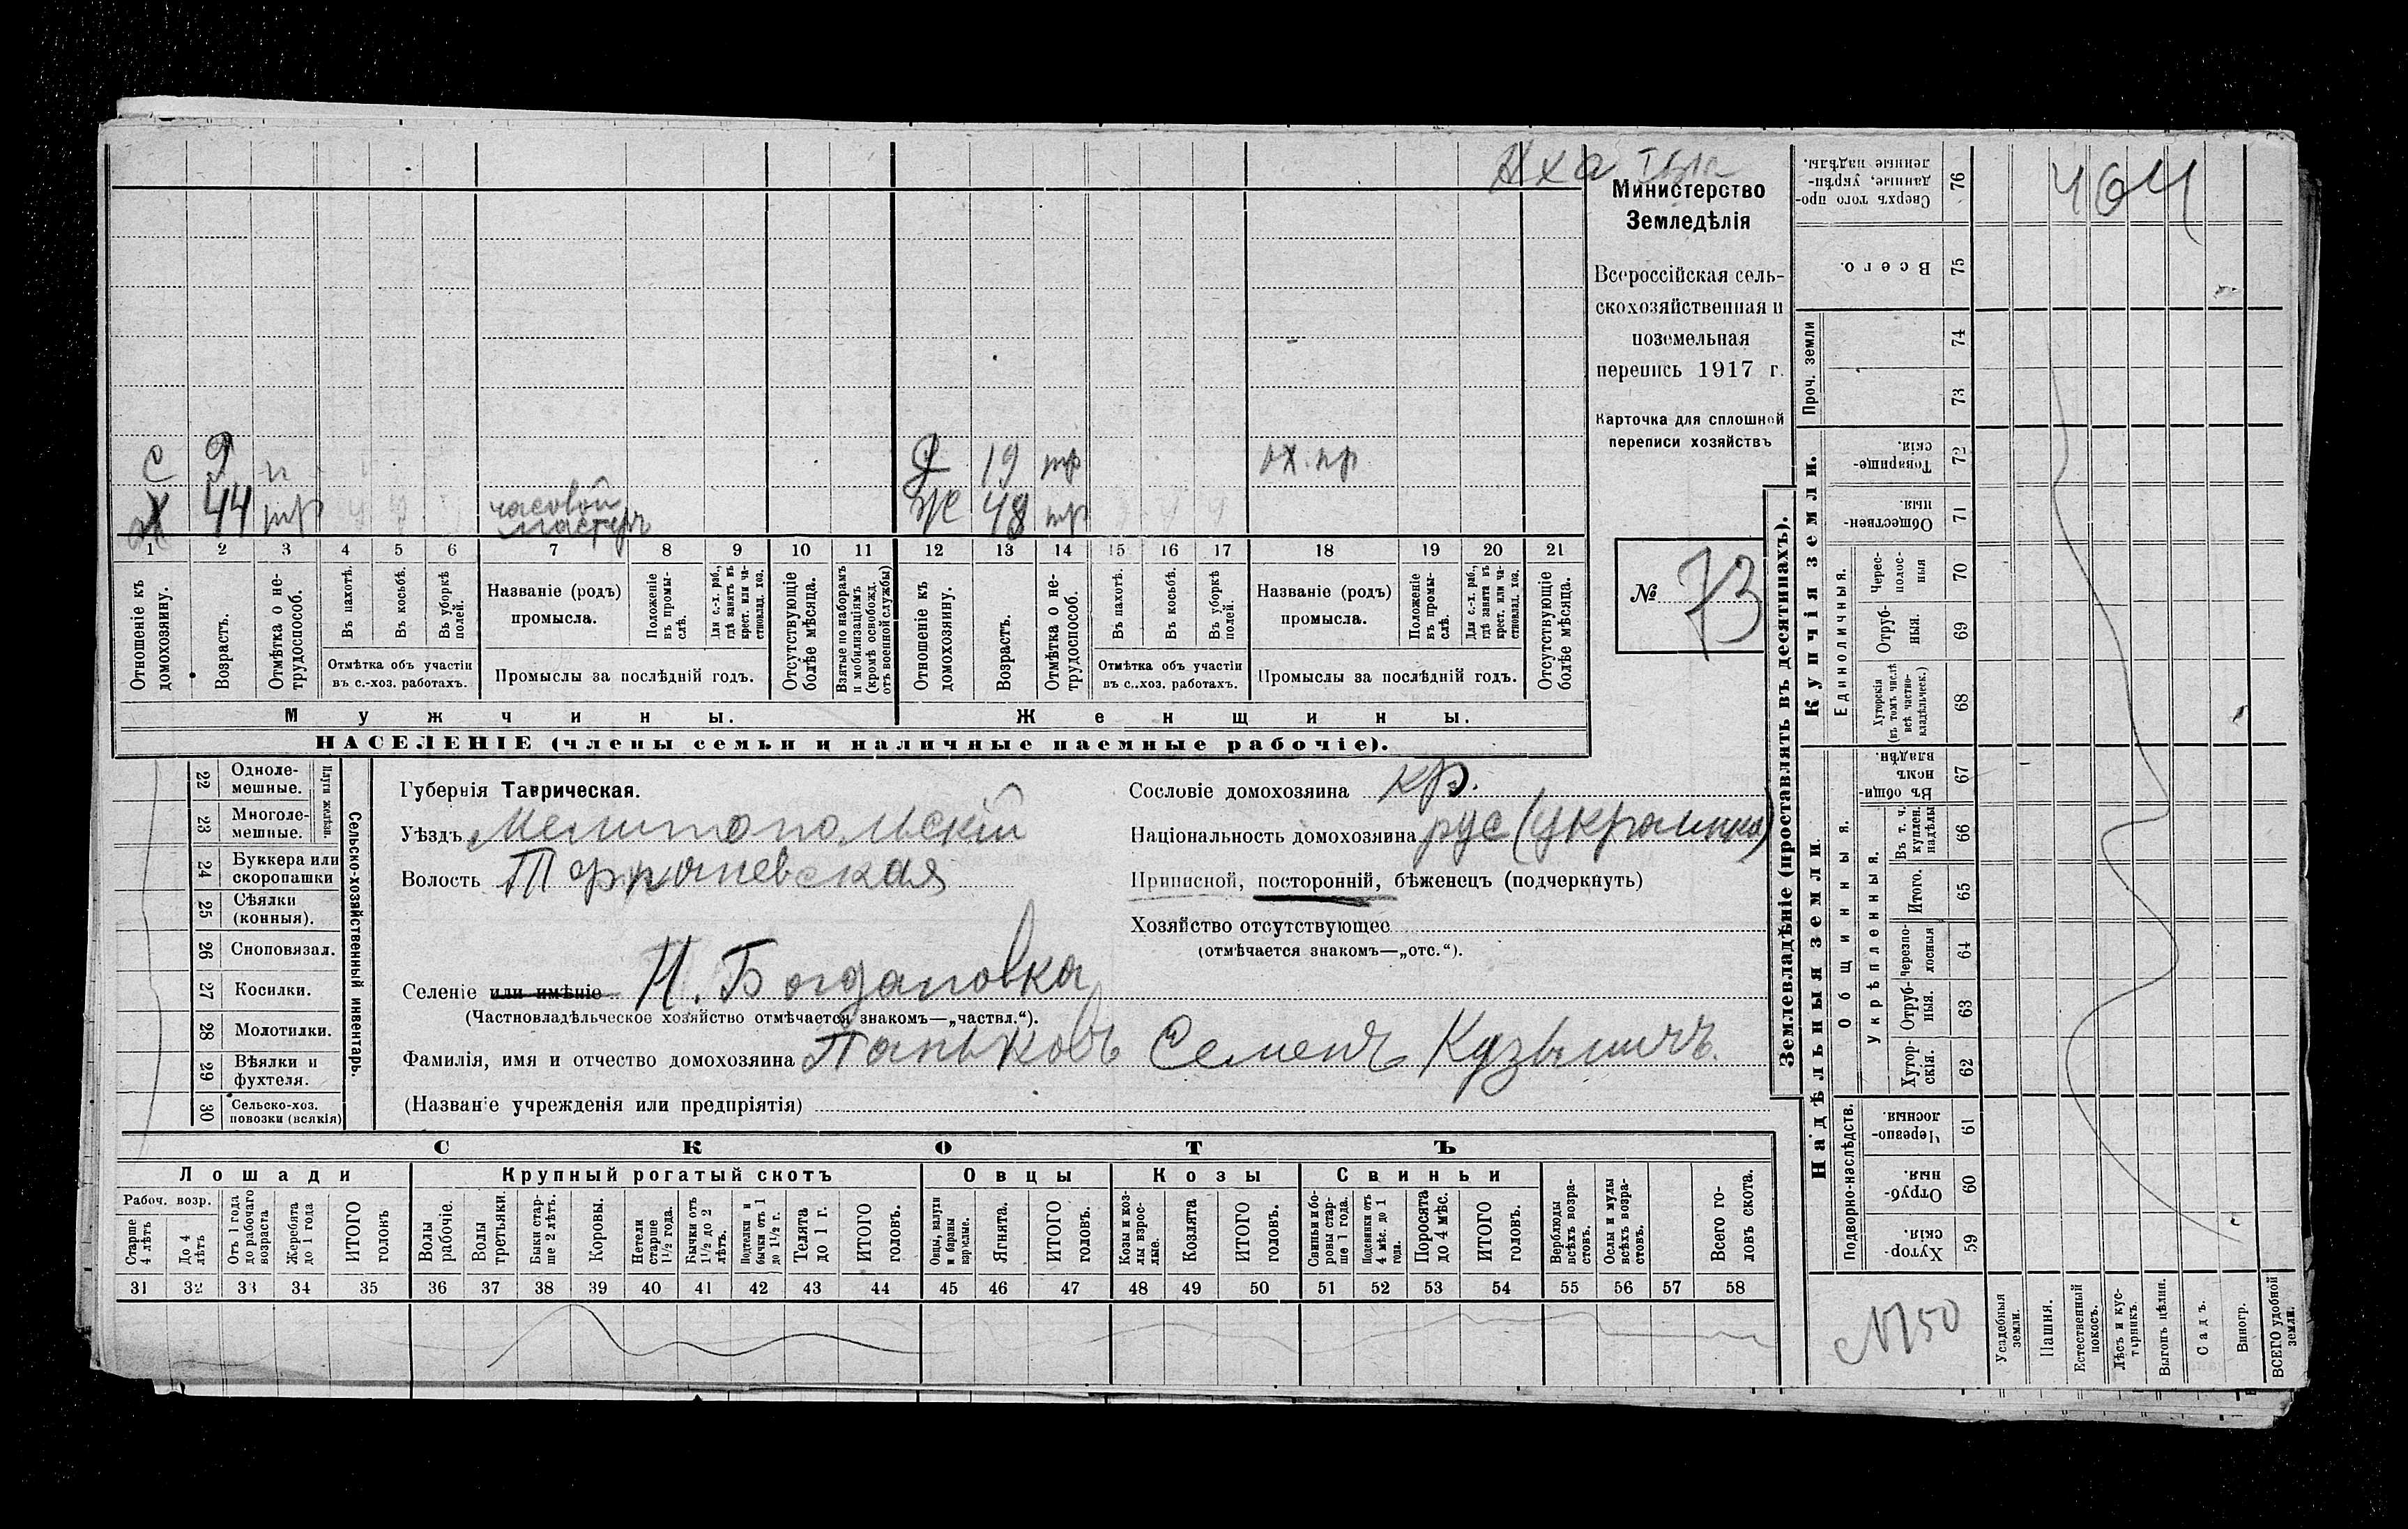 464
Министерство
Земледѣлія
Всероссійская сель-
скохозяйственная и
поземельная
перепись 1917 г.
Карточка для сплошной
переписи хозяйствъ
№ 73
с 9 н
Х 44 тр часовой мастеръ
д 19 тр
ж 48 тр
1 2 3 4 5 6 7 8 9 10 11 12 13 14 15 16 17 18 19 20 21
Отношеніе къ домохозяину.
Возрастъ.
Отмѣтка о не-трудоспособ.
Въ пахотѣ.
Въ косьбѣ.
Въ уборкѣ полей.
Отмѣтка объ участіи въ с.-хоз. работахъ.
Названіе (родъ) промысла.
Положеніе въ промы-слѣ.
Для с.-х. раб., гдѣ занятъ въ крест. или ча-стновлад. хоз.
Промыслы за послѣдній годъ.
Отсутствующіе болѣе мѣсяца.
Взятые по наборамъ и мобилизаціямъ (кромѣ освобожд. отъ военной службы)
Отношеніе къ домохозяину.
Возрастъ.
Отмѣтка о не-трудоспособ.
Въ пахотѣ.
Въ косьбѣ.
Въ уборкѣ полей.
Отмѣтка объ участіи въ с..хоз. работахъ.
Названіе (родъ) промысла.
Положеніе въ промы-слѣ.
Для с.-х. раб., гдѣ занята въ крест. или ча-стновлад. хоз.
Промыслы за послѣдній годъ.
Отсутствующіе болѣе мѣсяца.
Мужчины.
Женщины.
НАСЕЛЕНІЕ (члены семьи и наличные наемные рабочіе).
Сельско-хозяйственный инвентарь.
Плуги желѣзн.
22 Одноле-мешные.
23 Многоле-мешные.
24 Буккера или скоропашки
25 Сѣялки (конныя).
26 Сноповязал.
27 Косилки.
28 Молотилки.
29 Вѣялки и фухтеля.
30 Сельско-хоз. повозки (всякія)
Губернія Таврическая.
Уѣздъ Мелитопольскій
Волость
Селеніе или имѣніе Н. Богдановка
(Частновладѣльческое хозяйство отмѣчается знакомъ—„частвл.“).
Фамилія, имя и отчество домохозяина Паньковъ Семенъ Кузьмичъ.
(Названіе учрежденія или предпріятія)
Сословіе домохозяина кр.
Національность домохозяина рус (украинца)
Приписной, посторонній, бѣженецъ (подчеркнуть)
Хозяйство отсутствующее
(отмѣчается знакомъ—„отс.“).
СКОТЪ
Лошади
Крупный рогатый скотъ
Овцы
Козы
Свиньи
Рабоч. возр.
Старше 4 лѣтъ
До 4 лѣтъ
Отъ 1 года до рабочаго возраста
Жеребята до 1 года
ИТОГО головъ
Волы рабочіе.
Волы третьяки.
Быки стар-ше 2 лѣтъ.
Коровы.
Нетели старше 1½ года.
Бычки отъ 1½ до 2 лѣтъ.
Подтелки и бычки отъ 1 до 1½ г.
Телята до 1 г.
ИТОГО головъ.
Овцы, валухи и бараны взрослые.
Ягнята.
ИТОГО головъ.
Козы и коз-лы взрос-лые.
Козлята
ИТОГО головъ.
Свиньи и бо-ровы стар-ше 1 года.
Подсвинки отъ 4 мѣс. до 1 года.
Поросята до 4 мѣс.
ИТОГО головъ.
Верблюды всѣхъ возра-стовъ.
Ослы и мулы всѣхъ возра-стовъ.
Всего го-ловъ скота.
31 32 33 34 35 36 37 38 39 40 41 42 43 44 45 46 47 48 49 50 51 52 53 54 55 56 57 58
Землевладѣніе (проставлять въ десятинахъ).
Надѣльныя земли.
Купчія земли.
Проч. земли
Подворно-наслѣдств.
Общинныя.
Укрѣпленныя.
Единоличныя.
76 Сверхъ того про-данные, укрѣп-ленные надѣлы.
75 Всего.
74
73
72 Товарище-скія.
71 Обществен-ныя
70 Черес-полос-ныя
69 Отруб-ныя.
68 Хуторскія (въ томъ числѣ всѣ частно-владѣльческ.)
67 Въ общин-номъ владѣн.
66 Въ т. ч. куплен. надѣлы
65 Итого.
64 Черезпо-лосныя
63 Отруб-ныя.
62 Хутор-скія.
61 Черезпо-лосныя.
60 Отруб-ныя.
59 Хутор-скія.
№50
Усадебныя земли.
Пашня.
Естественный покосъ.
Лѣсъ и кус-тарникъ.
Выгонъ цѣлин.
Садъ.
Виногр.
ВСЕГО удобной земли.